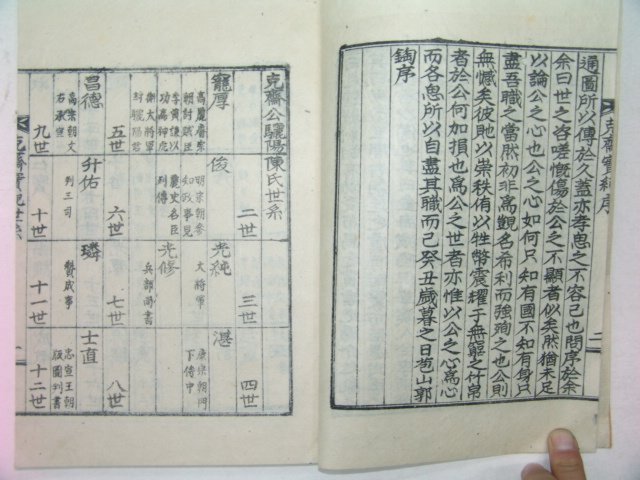 克齋實紀序
二
通圖所以傳於久蓋亦孝思之不容已也問序於余
余曰世之咨嗟慨傷於公之不顯者似矣然猶未足
以論公之心也公之心如何只知有國不知有身只
盡吾職之當然初非爲覬名希利而强殉之也公則
無憾矣彼貤以崇秩侑以牲幣震耀于無窮之竹帛
者於公何如損也爲公之世者亦惟以公之心爲心
而各思所以自盡其職而已癸丑歲暮之日苞山郭
鋾序
克齋公驪陽陳氏世系
二世
三世
四世
寵厚
高麗睿宗
朝討賊臣
李資謙以
功爲神虎
衛大將軍
封驪陽君
俊
明宗朝參
知政事見
麗史名臣
列傳
光純
大將軍
光修
兵部尚書
湛
康宗朝門
下侍中
五世
六世
七世
八世
昌德
高宗朝文
右承宣
升佑
判三司
璘
贊成事
士直
忠宣王朝
版圖判書
九世
十世
十一世
十二世
克齋實紀世系
一